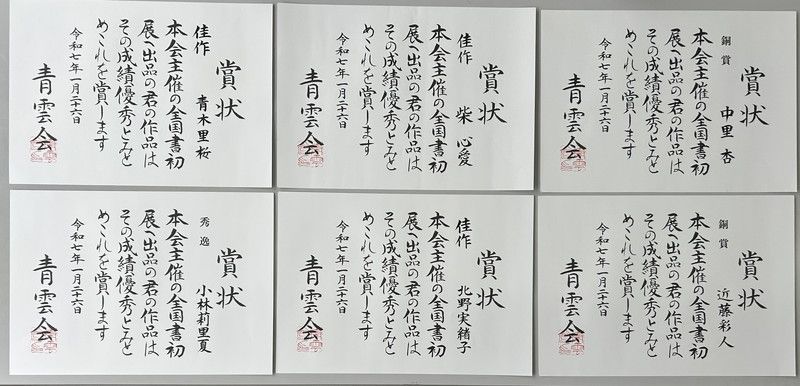 賞状
銅賞 中里 杏
本会主催の全国書初
展へ出品の君の作品は
その成績優秀とみと
めこれを賞します
令和七年一月二十六日
青雲会
賞状
佳作 柴 心愛
本会主催の全国書初
展へ出品の君の作品は
その成績優秀とみと
めこれを賞します
令和七年一月二十六日
青雲会
賞状
佳作 青木里桜
本会主催の全国書初
展へ出品の君の作品は
その成績優秀とみと
めこれを賞します
令和七年一月二十六日
青雲会
賞状
銅賞 近藤彩人
本会主催の全国書初
展へ出品の君の作品は
その成績優秀とみと
めこれを賞します
令和七年一月二十六日
青雲会
賞状
佳作 北野実緒子
本会主催の全国書初
展へ出品の君の作品は
その成績優秀とみと
めこれを賞します
令和七年一月二十六日
青雲会
賞状
秀逸 小林莉里夏
本会主催の全国書初
展へ出品の君の作品は
その成績優秀とみと
めこれを賞します
令和七年一月二十六日
青雲会